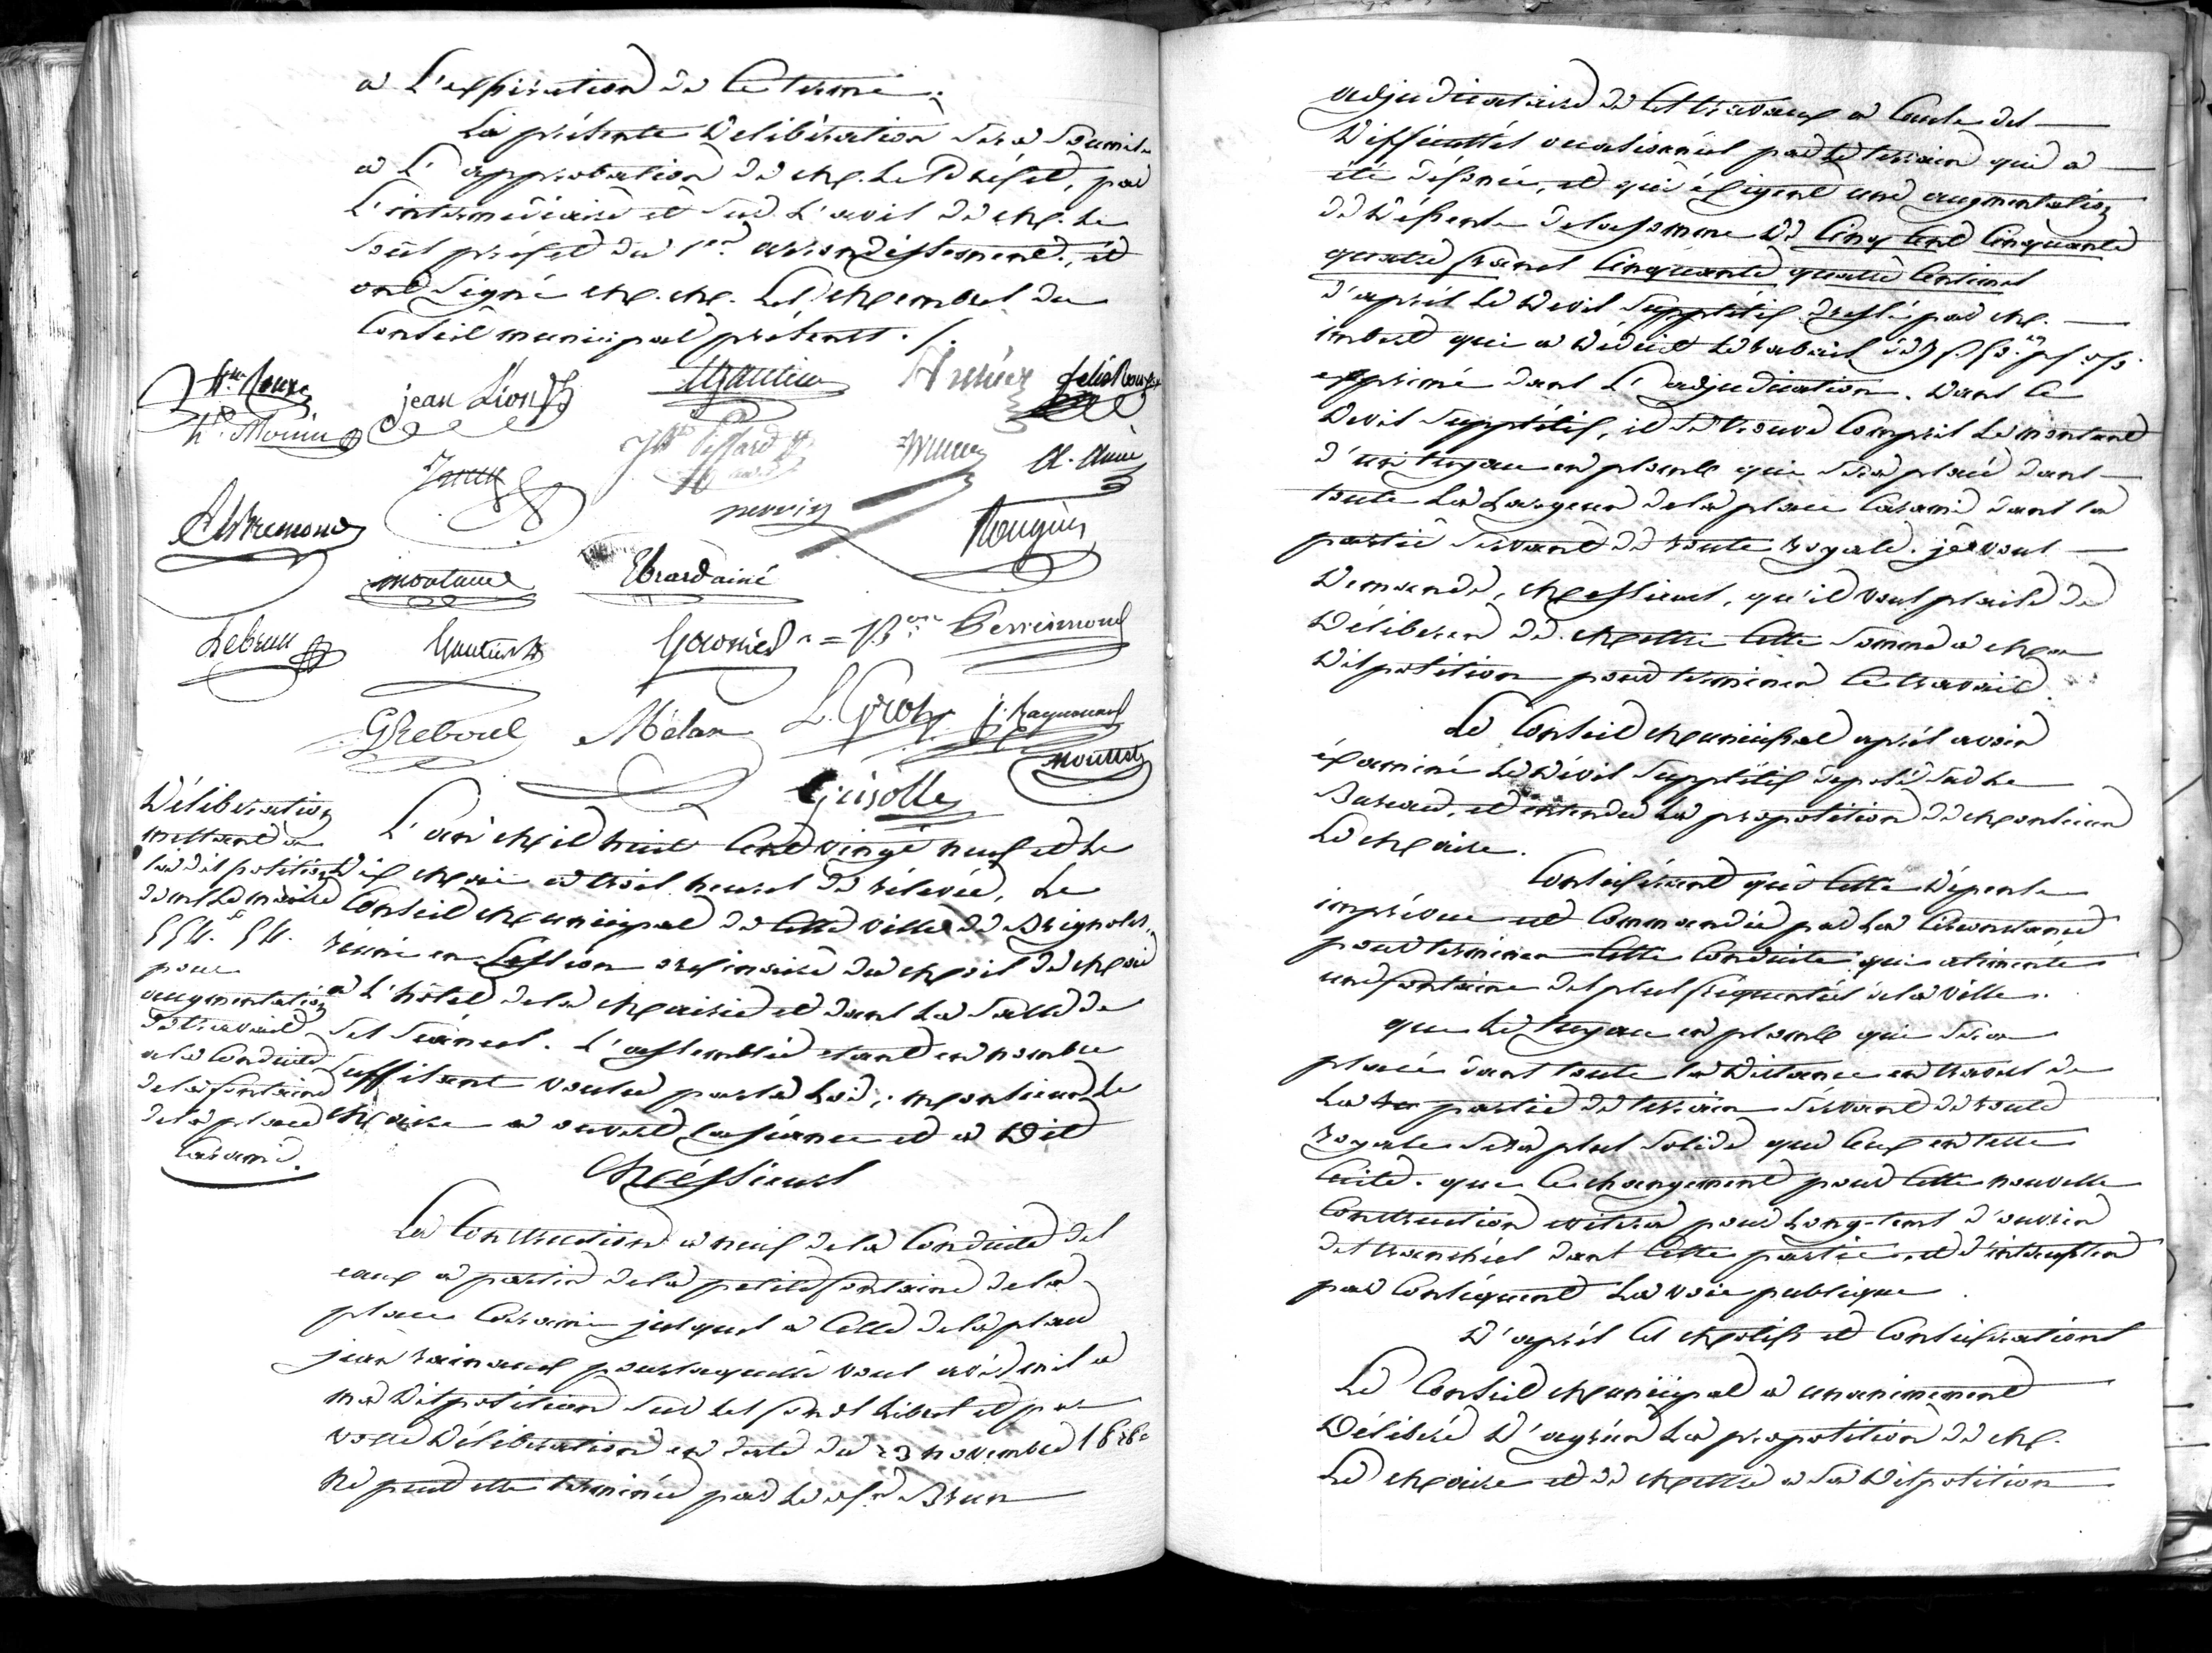 a L'expiration de Ce terme.
La présente Délibération sera Soumise
a L'approbation de M. Le Préfet, par
L'intermédiaire et sur L'avis de M. Le
Sous préfet du 1er. arrondissement, et
ont Signé M. M. Les Membres du
Conseil municipal présents. /.
jean Lion
felix
hte. Monin
perrin
Rougier
Ebrard ainé
Lebrun
Gautier
Garnier
G Reboul
Melan
L. Gros
j. Raynouard
Guisolle
Délibération
mettant a
la disposition
de mr Le maire
554.f 54.
pour
augmentation
de travail
a la Conduite
de la fontaine
de la place
Carami.
L'an Mil huit Cent vingt neuf et Le
Dix Mai a trois heures de relevée, Le
Conseil Municipal de Cette ville de Brignoles,
réuni en Session ordinaire du Mois de Mai
a L'hôtel de la Mairie et dans La Salle de
Ses Séances. L'assemblée étant en nombre
Suffisant voulu par la Loi, monsieur Le
Maire a ouvert La Séance et a Dit
Méssieurs
La Construction a neuf de la Conduite des
eaux a partir de la petite fontaine de la
place Carami jusques a Celle de la place
jean rainaud pour laquelle vous avés mis a
ma Disposition Sur Les fonds Libres et par
votre Délibération en date du 23 novembre 1828
Ne peut être terminée par Le sr Brun
adjudicataire de Ces travaux a Cause des
Difficultés occasionnées par Le terrain qui a
été , et qui éxigent une augmentation
de Dépense de la somme De Cinq Cent Cinquante
quatre francs Cinquante quatre Centimes
d'après Le Devis Supplétif dressé par M.
imbert qui a Déduit Le rabais de
exprimé dans L'adjudication. Dans Ce
Devis Supplétif, il se trouve Compris Le montant
d'un tuyau en plomb qui sera placé dans
toute La Largeur de la place Carami dans la
partie Servant de route royale. je vous
Demande, Messieurs, qu'il vous plaise de
Délibérer de Mettre Cette Somme a Ma
Disposition pour terminer Ce travail.
Le Conseil Municipal après avoir
éxaminé Le Dévis Supplétif déposé sur Le
Bureau, et entendu La proposition de Monsieur
Le Maire.
Considérant que Cette Dépense
imprévue est Commandée par La Circonstance
pour terminer Cette Conduite qui alimente
une fontaine des plus fréquentées de la Ville.
que Le tuyau en plomb qui Sera
placé dans toute la Distance en travers de
La partie de terrain Servant de route
royale Sera plus Solide que Ceux en terre
Cuite. que Ce changement pour Cette nouvelle
Construction évitera pour Long-tems d'ouvrir
des tranchées dans Cette partie, et d'intercepter
par Conséquent La voie publique.
D'après Ces Motifs et Considérations
Le Conseil Municipal a unanimement
Délibéré D'agréer La proposition de M.
Le Maire et de Mettre a Sa Disposition